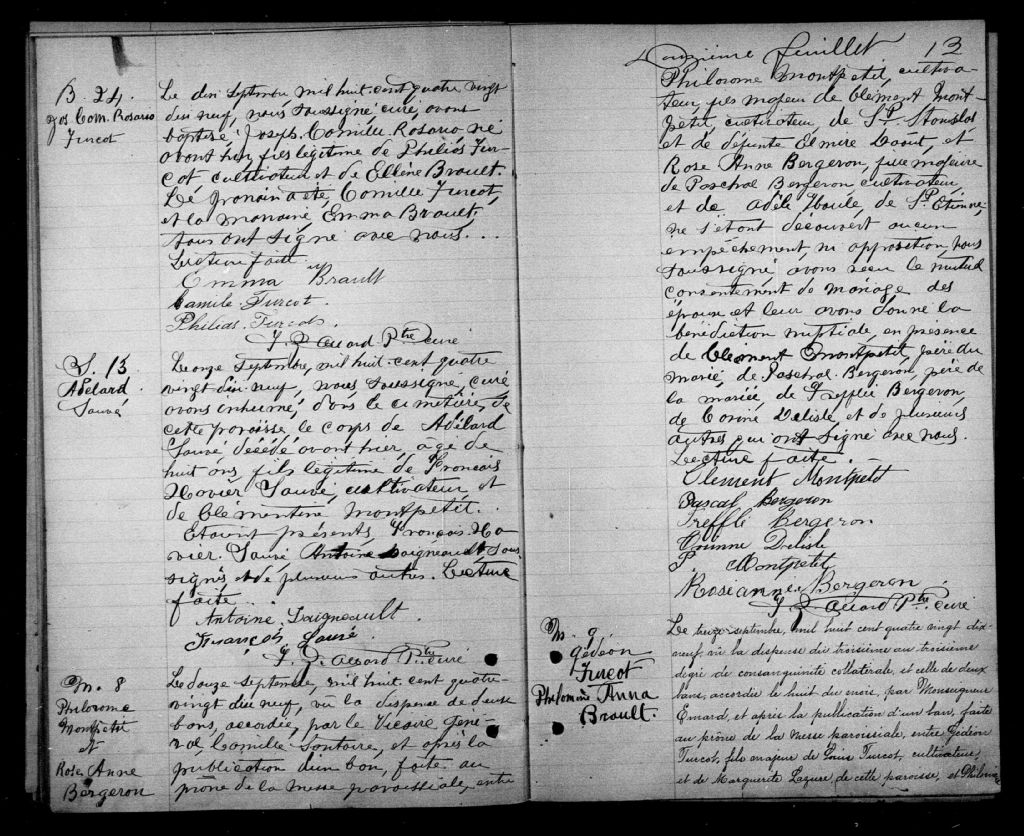 B. 24.
Jos. Com. Rosario
Turcot
Le dix septembre mil huit cent quatre vingt
dix neuf, nous soussigné, curé, avons
baptisé, Joseph Camille Rosario né
avant hier, fils légitime de Philias Tur-
cot cultivateur et de Ellène Brault.
Le parrain a été, Camille Turcot,
et la marraine, Emma Brault,
tous ont signé avec nous...
Lecture faite
Emma Brault
Camile Turcot.
Philias Turcot.
Ptre curé
S. 13
Adélard
Sauvé
Le onze septembre, mil huit cent quatre
vingt dix neuf, nous soussigné, curé
avons inhumé, dans le cimetière, de
cette paroisse le corps de Adélard
Sauvé décédé avant hier, agé de
huit ans fils légitime de Francois
Xavier Sauvé, cultivateur et
de Clémentine Montpetit.
Etaient présents, Francois Xa-
vier Sauvé Antoine Daigneault, sous-
signés, et de plusieurs autres. Lecture
faite...
Antoine Daigneault
François Sauvé
Ptre curé
M. 8
Philorome
Montpetit
et
Rose Anne
Bergeron
Le douze septembre, mil huit cent quatre-
vingt dix neuf, vû la dispense de deux
bans, accordée, par le Vicaire géné-
ral Camille, et après la
publication d'un ban, faite au
prône de la messe paroissiale, entre
Douzième feuillet 13
Philorome Montpetit, cultiva-
teur, fils majeur de Clément Mont-
petit, cultivateur, de St. Stanislas
et de défunte Elmire Daoût, et
Rose Anne Bergeron, fille majeure
de Paschal Bergeron cultivateur,
et de Adèle Houle, de St. Etienne,
ne s'étant découvert aucun
empêchement, ni opposition, nous
soussigné, avons reçu le mutuel
consentement de mariage des
époux et leur avons donné la
bénédiction nuptiale, en présence
de Clément Montpetit, père du
marié, de Paschal Bergeron, père de
la mariée, de Trefflé Bergeron,
de Corine Delisle, et de plusieurs
autres qui ont signé avec nous.
Lecture faite.
Clement Montpetit
Pascal Bergeron
Treffle Bergeron
Corinne Delisle
P. Montpetit
Roseanne Bergeron
Ptre curé
M. 9
Gédéon
Turcot
Philomène Anna
Brault.
Le treize septembre, mil huit cent quatre vingt dix
neuf, vû la dispense du troisième au troisième
degré de consanguinité collatérale, et celle de deux
bans, accordée le huit du mois, par Monseigneur
Emard, et après la publication d'un ban, faite
au prône de la messe paroissiale, entre Gédéon
Turcot, fils majeur de Louis Turcot, cultivateur,
et de Marguerite Lazure de cette paroisse, et Philomène